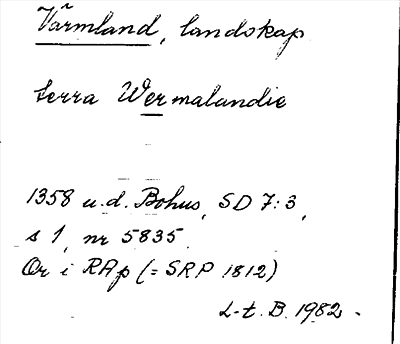 Värmland, landskap
terra Wermalandie
1358 u.d. Bohus, SD 7:3,
s 1, nr 5835.
Or i RAp (= SRP 1812)
L-t. B. 1982.